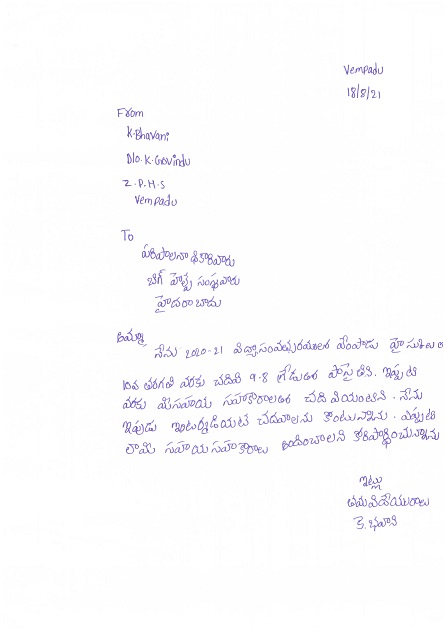 Vempadu
18/8/21
From
K.Bhavani
D/o.K.Govindu
Z.P.H.S
Vempadu
To
పరిపాలనాధికారివారు
బిగ్ హెల్ప్ సంస్థవారు
హైదరాబాదు
నేను 2020-21 విద్యాసంవత్సరములో వేంపాడు హైస్కూలు
10వ తరగతి వరకు చదివి 9.8 గ్రేడులో పాసైతిని. ఇప్పటి
వరకు మీసహాయ సహకారాలతో చదివియుంటిని. నేను
ఇపుడు ఇంటర్మీడియట్ చదవాలను కొంటున్నాను. ఎప్పటి
లామీ సహాయసహకారాలు అందించాలని కోరిప్రార్థించుచున్నాను
ఇట్లు
తమవిధేయురాలు
కె. భవాని